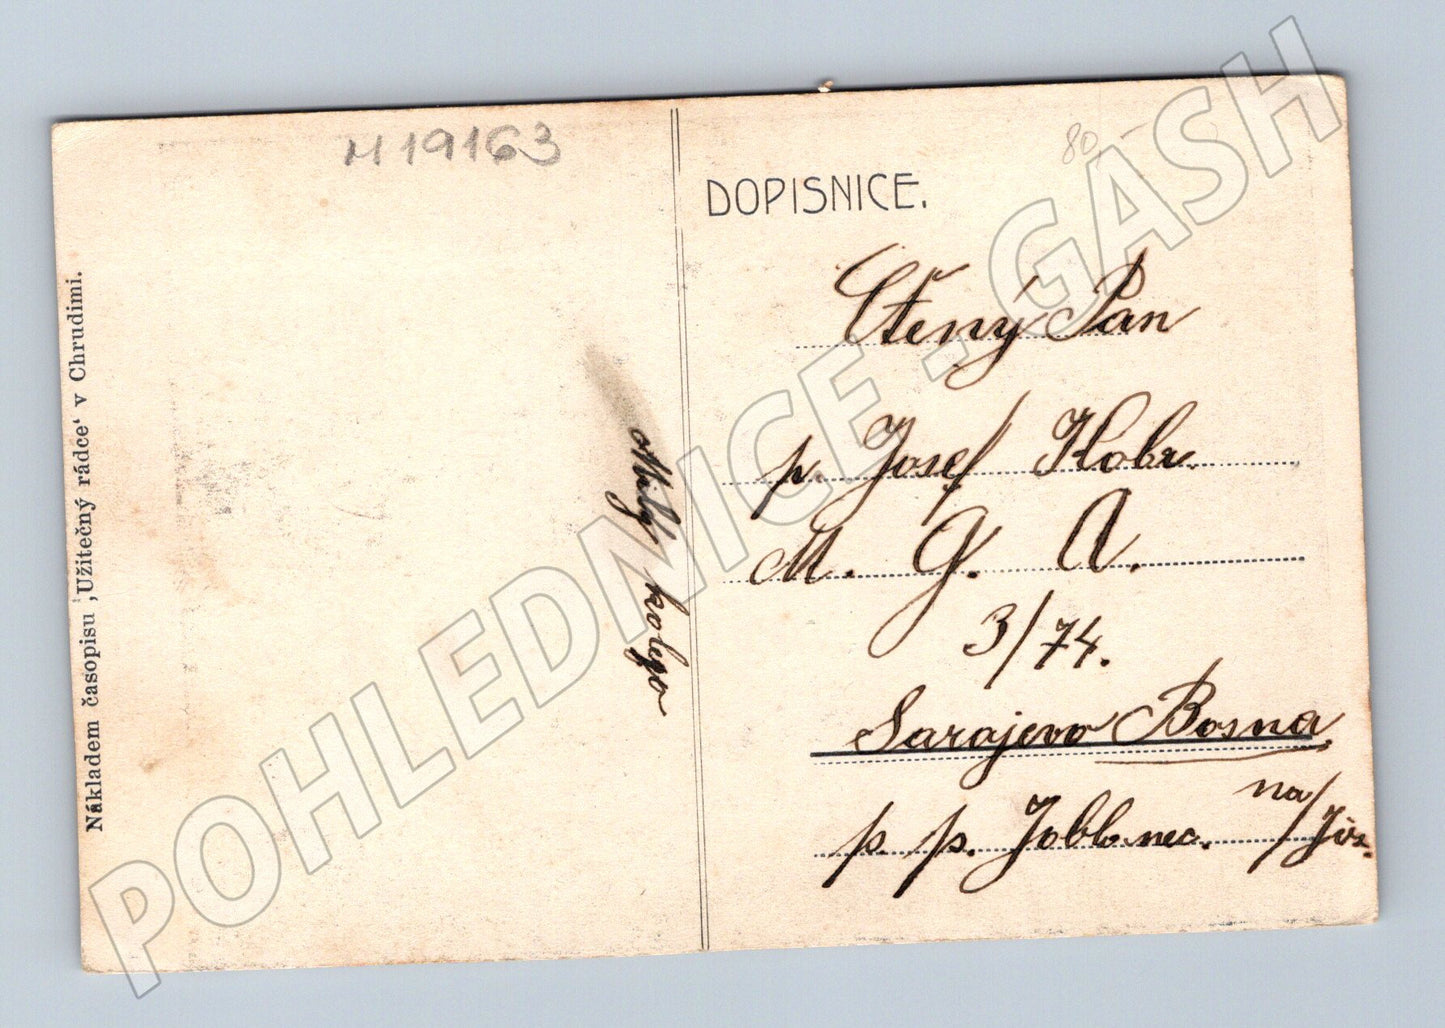 M 19163
80,-
DOPISNICE.
Ctěný Pan
p. Josef Kobr.
M. G. A.
3/74.
Sarajevo Bosna
p. p. Jablonec. na/Jiz.
Milý kolego
Nákladem časopisu ‚Užitečný rádce‘ v Chrudimi.
POHLEDNICE - GASH